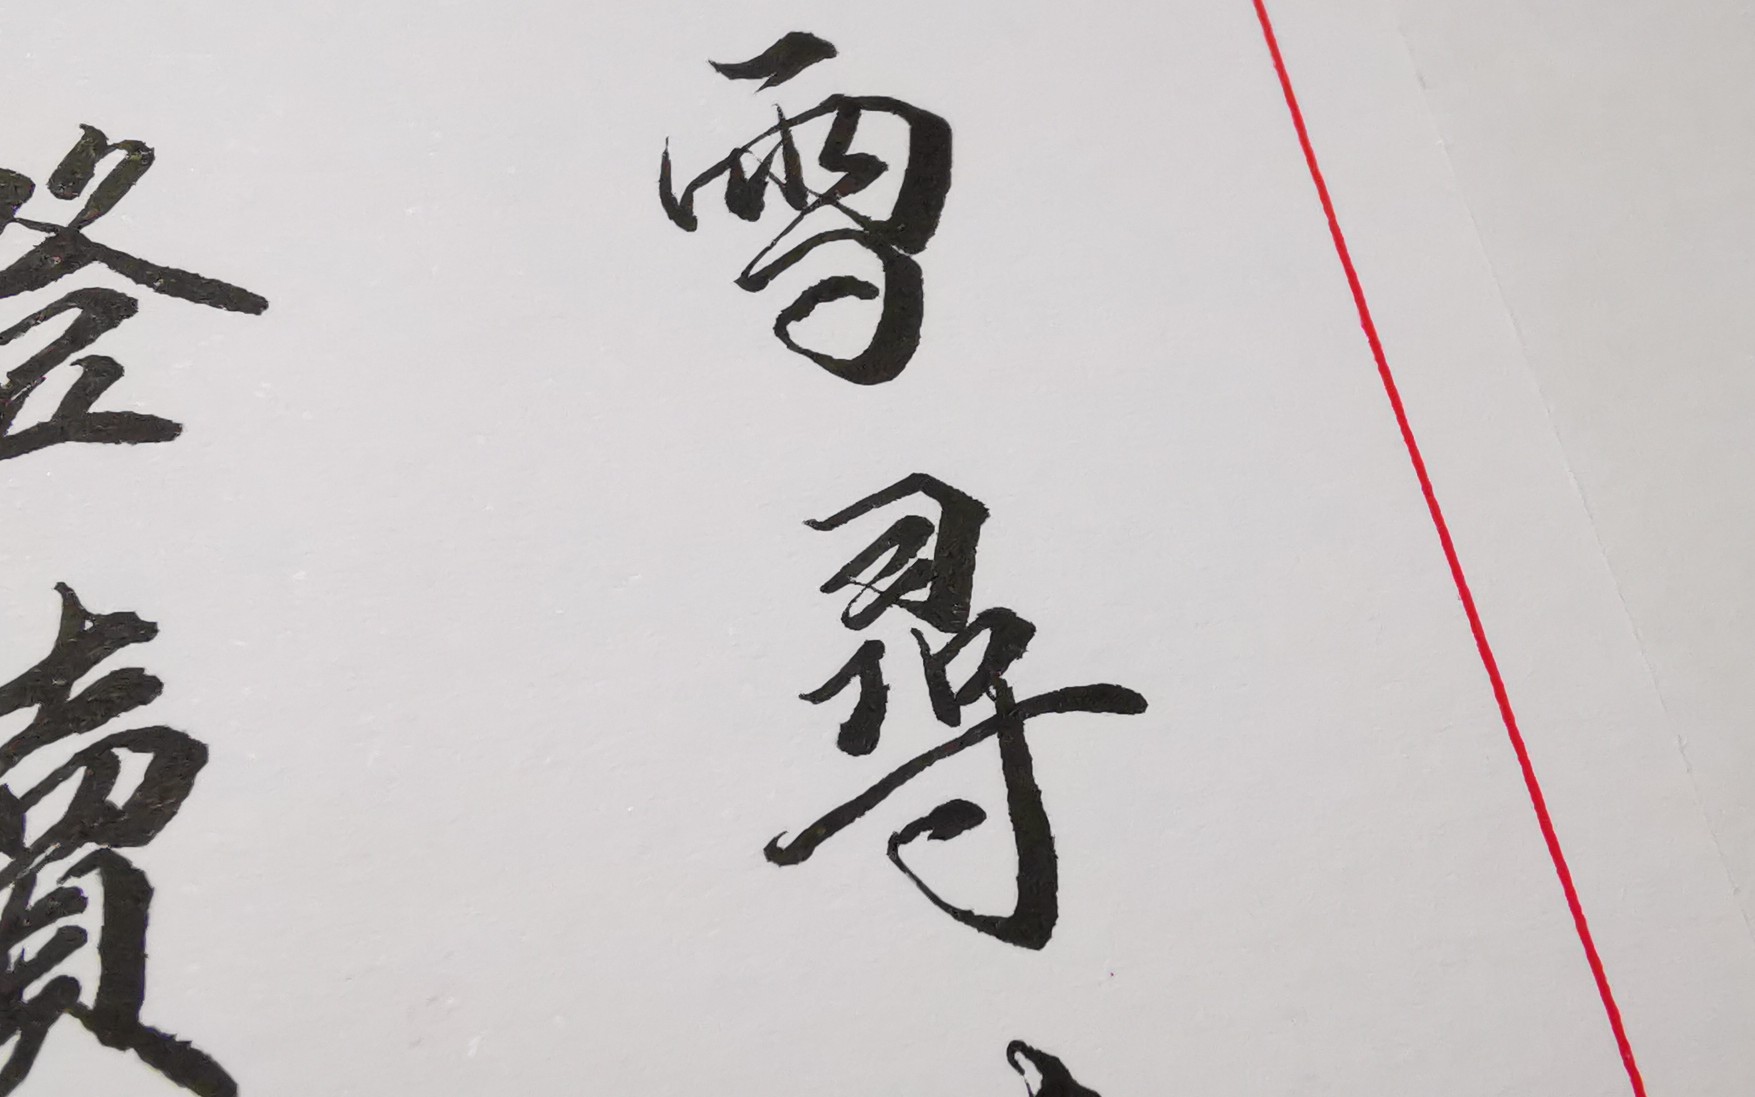 雪尋
登賣